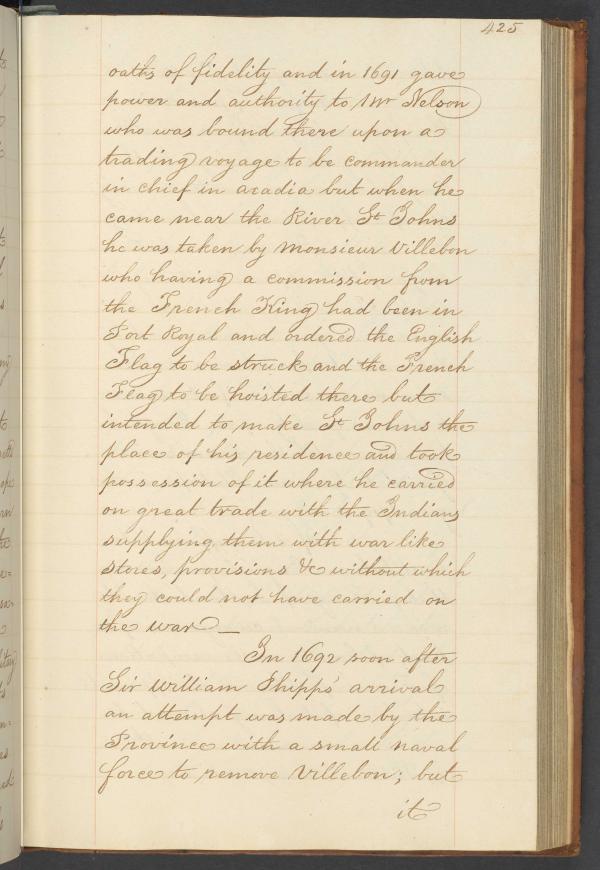 425
oaths of fidelity and in 1691 gave
power and authority to Mr Nelson
who was bound there upon a
trading voyage to be commander
in chief in acadia but when he
came near the River St Johns
he was taken by Monsieur Villebon
who having a commission from
the French King had been in
Port Royal and ordered the English
Flag to be struck and the French
Flag to be hoisted there but
intended to make St Johns the
place of his residence and took
possession of it where he carried
on great trade with the Indians
supplying them with war like
stores, provisions &c without which
they could not have carried on
the war —
In 1692 soon after
Sir William Phipps' arrival
an attempt was made by the
Province with a small naval
force to remove Villebon; but
it